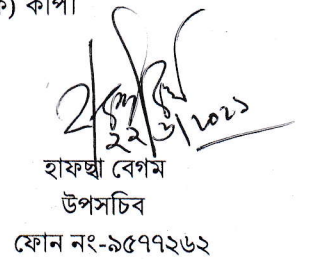 ক) কাপি
২২/৬/২০২১
হাফছা বেগম
উপসচিব
ফোন নং-৯৫৭৭২৬২